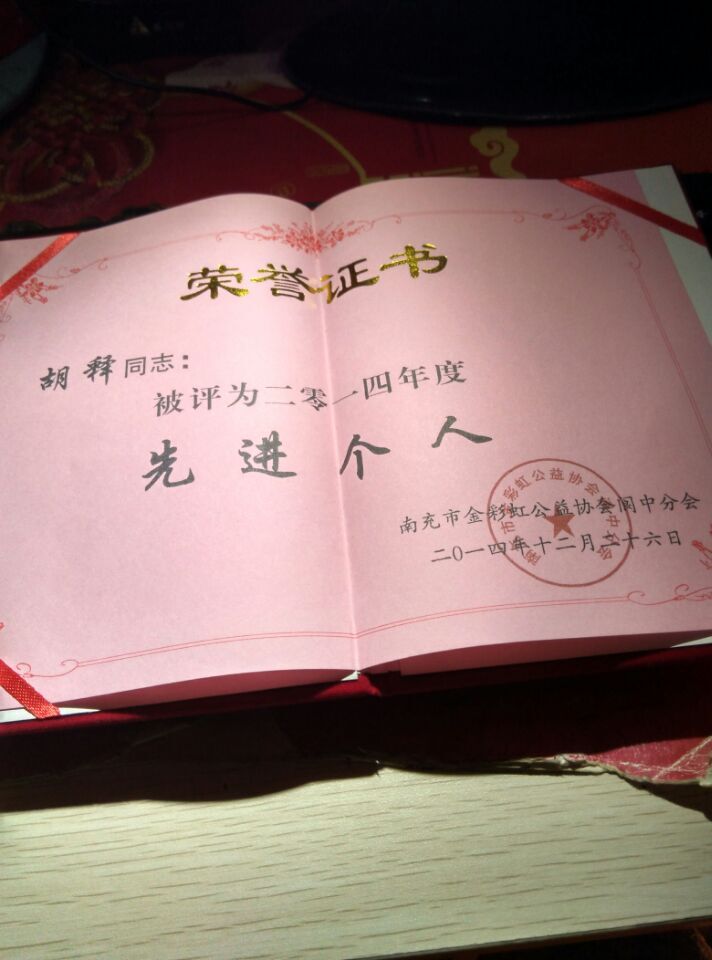 荣誉证书
胡释同志：
被评为二零一四年度
先进个人
南充市金彩虹公益协会阆中分会
二0一四年十二月二十六日